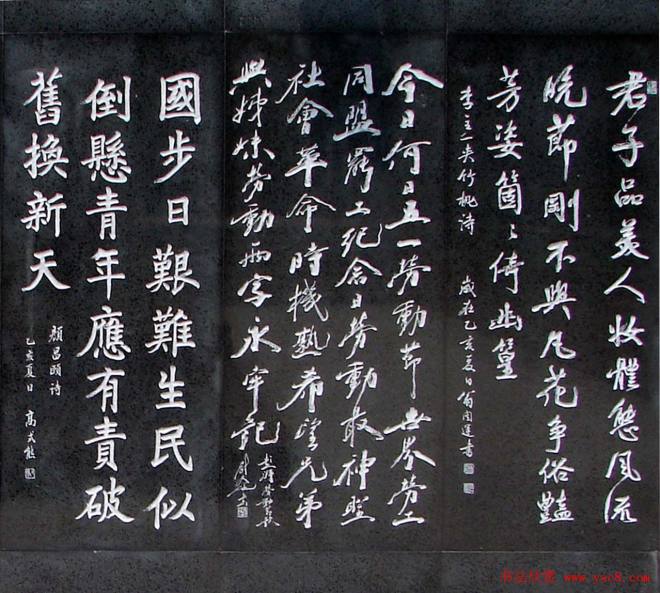 君子品美人妝體態风流
晚節剛不與凡花争俗豔
芳姿箇〻倚幽篁
李立三夹竹桃诗 歲在乙亥夏日翁闿運書
今日何日五一勞動節世界劳工
同盟罷工紀念日勞動最神聖
社會革命時機熟希望兄弟
與姊妹勞動兩字永牢記
國步日艱難生民似
倒懸青年應有責破
舊換新天
顏昌頤诗
乙亥夏日 高式熊
书法欣赏 www.yac8.com